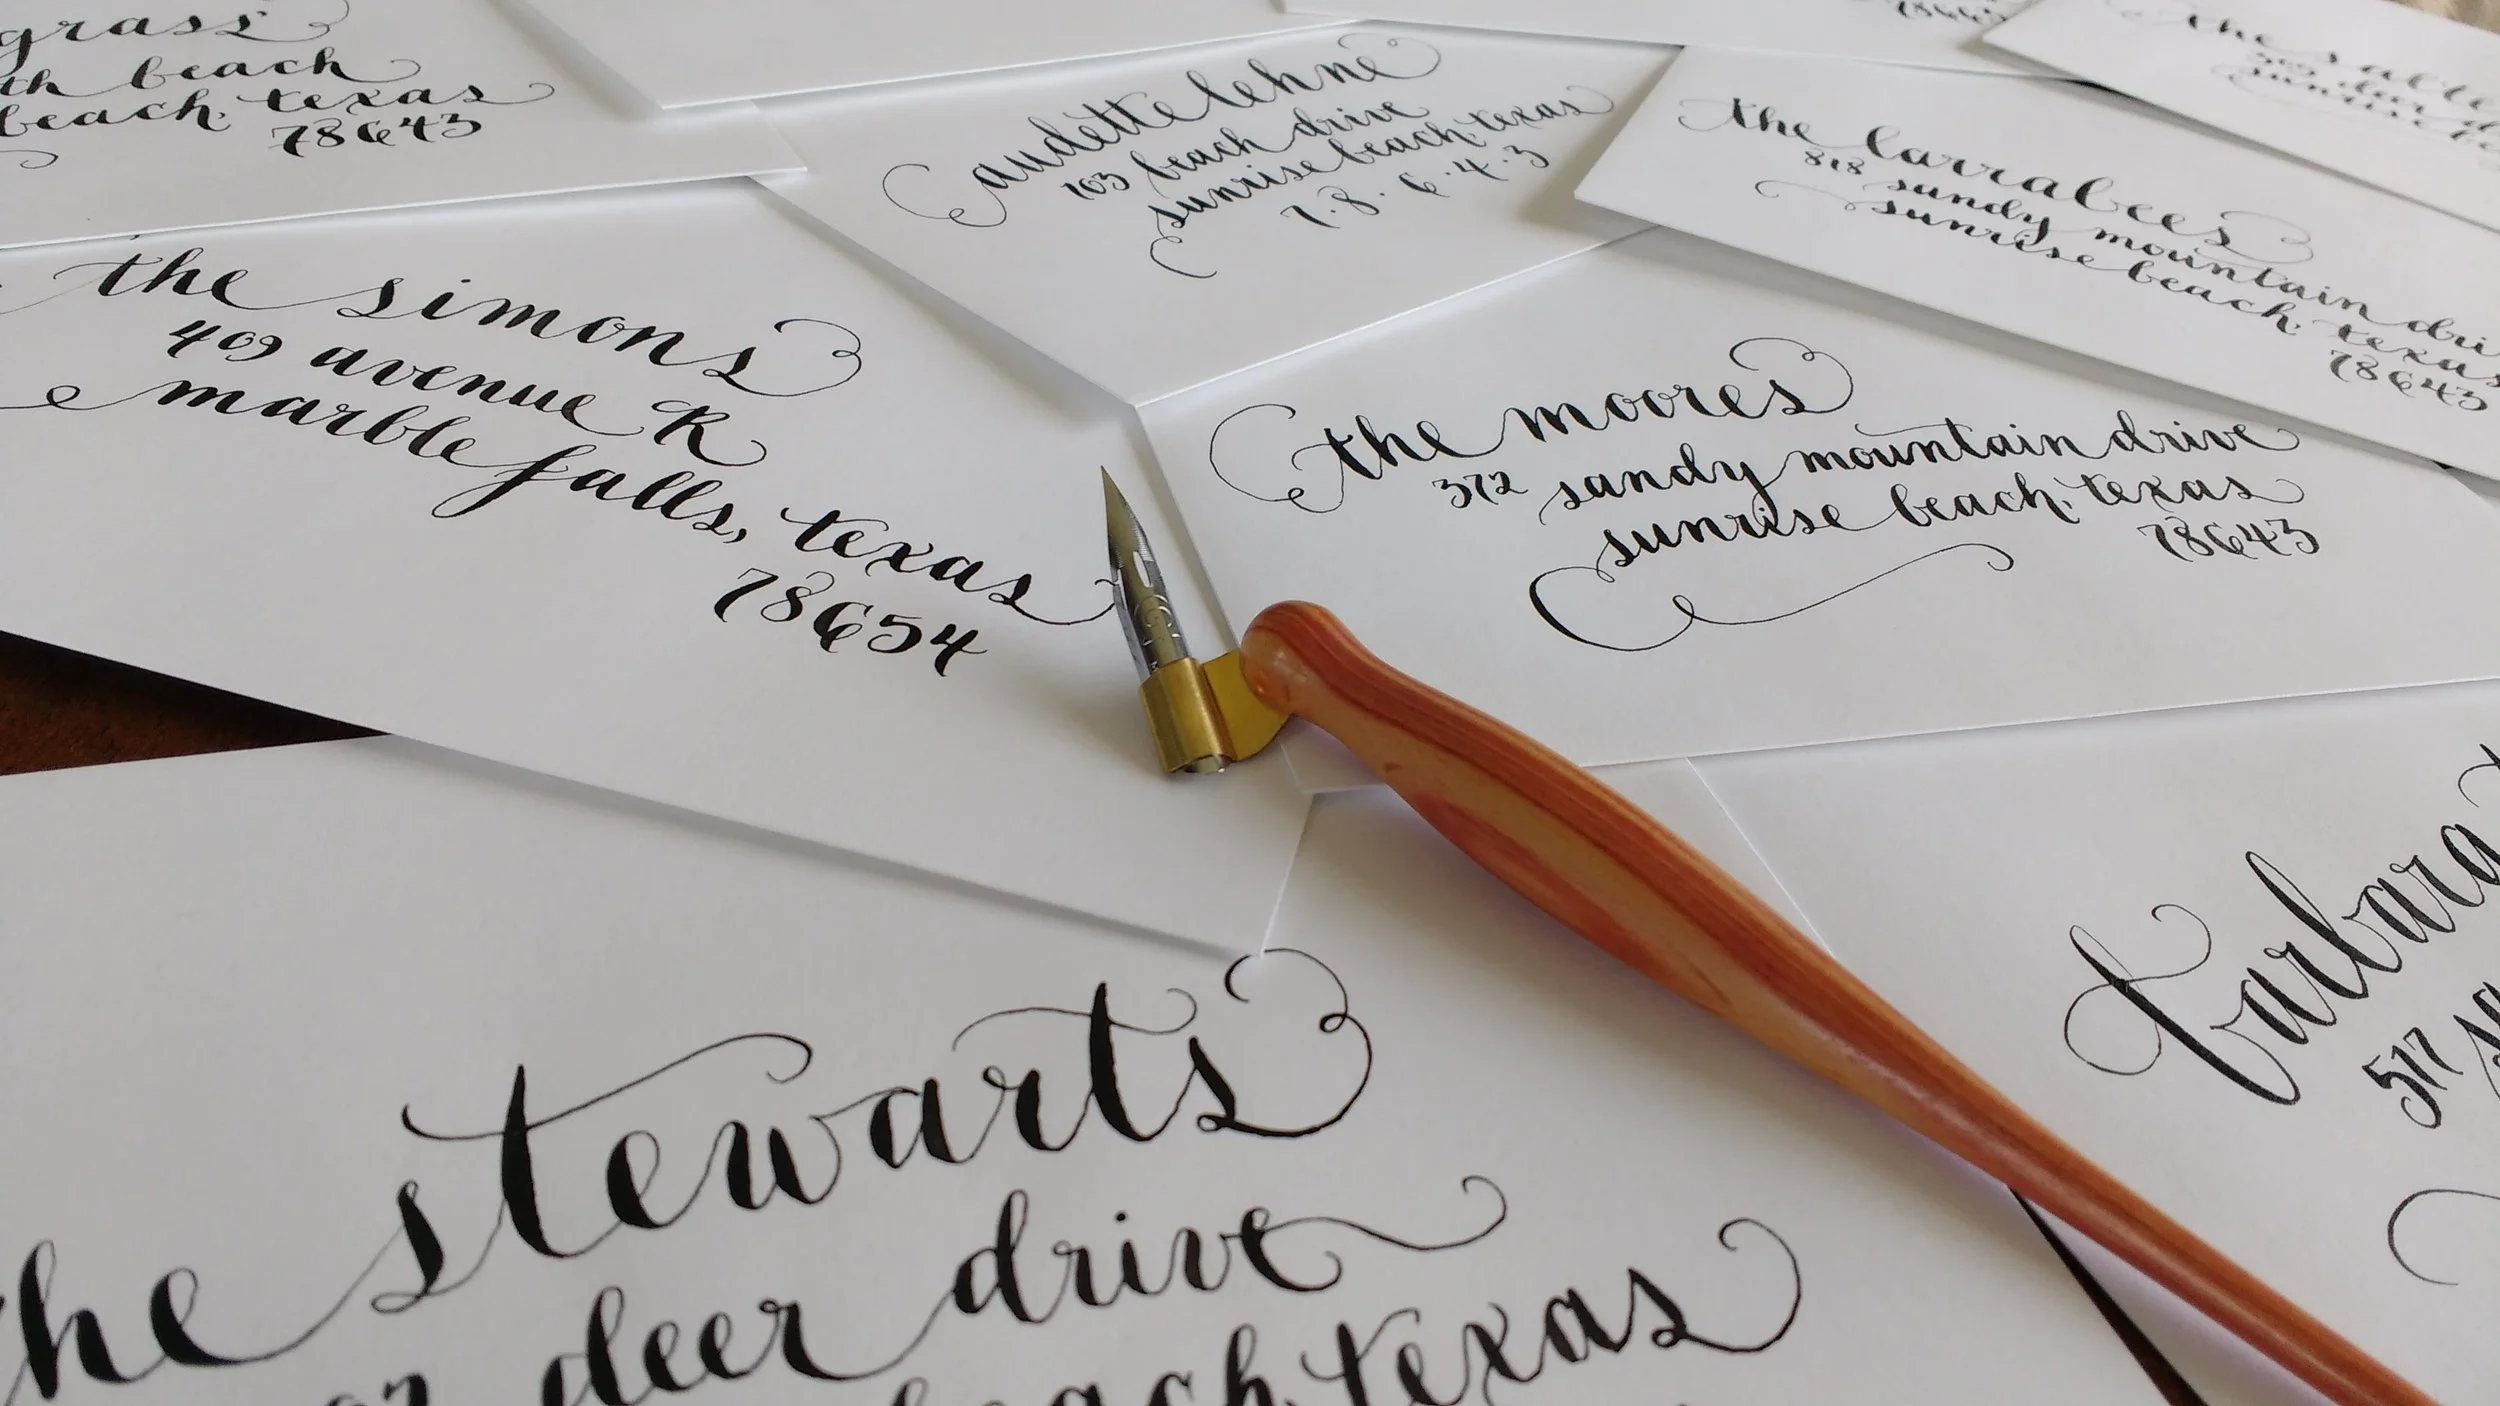 grass
beach
beach, texas
78643
audette lehne
103 beach drive
sunrise beach, texas
7.8.6.4.3
the larrabees
818 sandy mountain
sunrise beach, texas
78643
the
deer
sunrise
the simons
409 avenue R
marble falls, texas
78654
the moores
372 sandy mountain drive
sunrise beach, texas
78643
barbara
517
the stewarts
deer drive
beach, texas